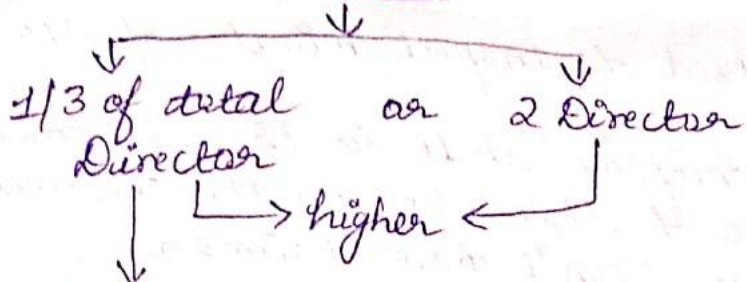 1/3 of total or 2 Director
Director
higher